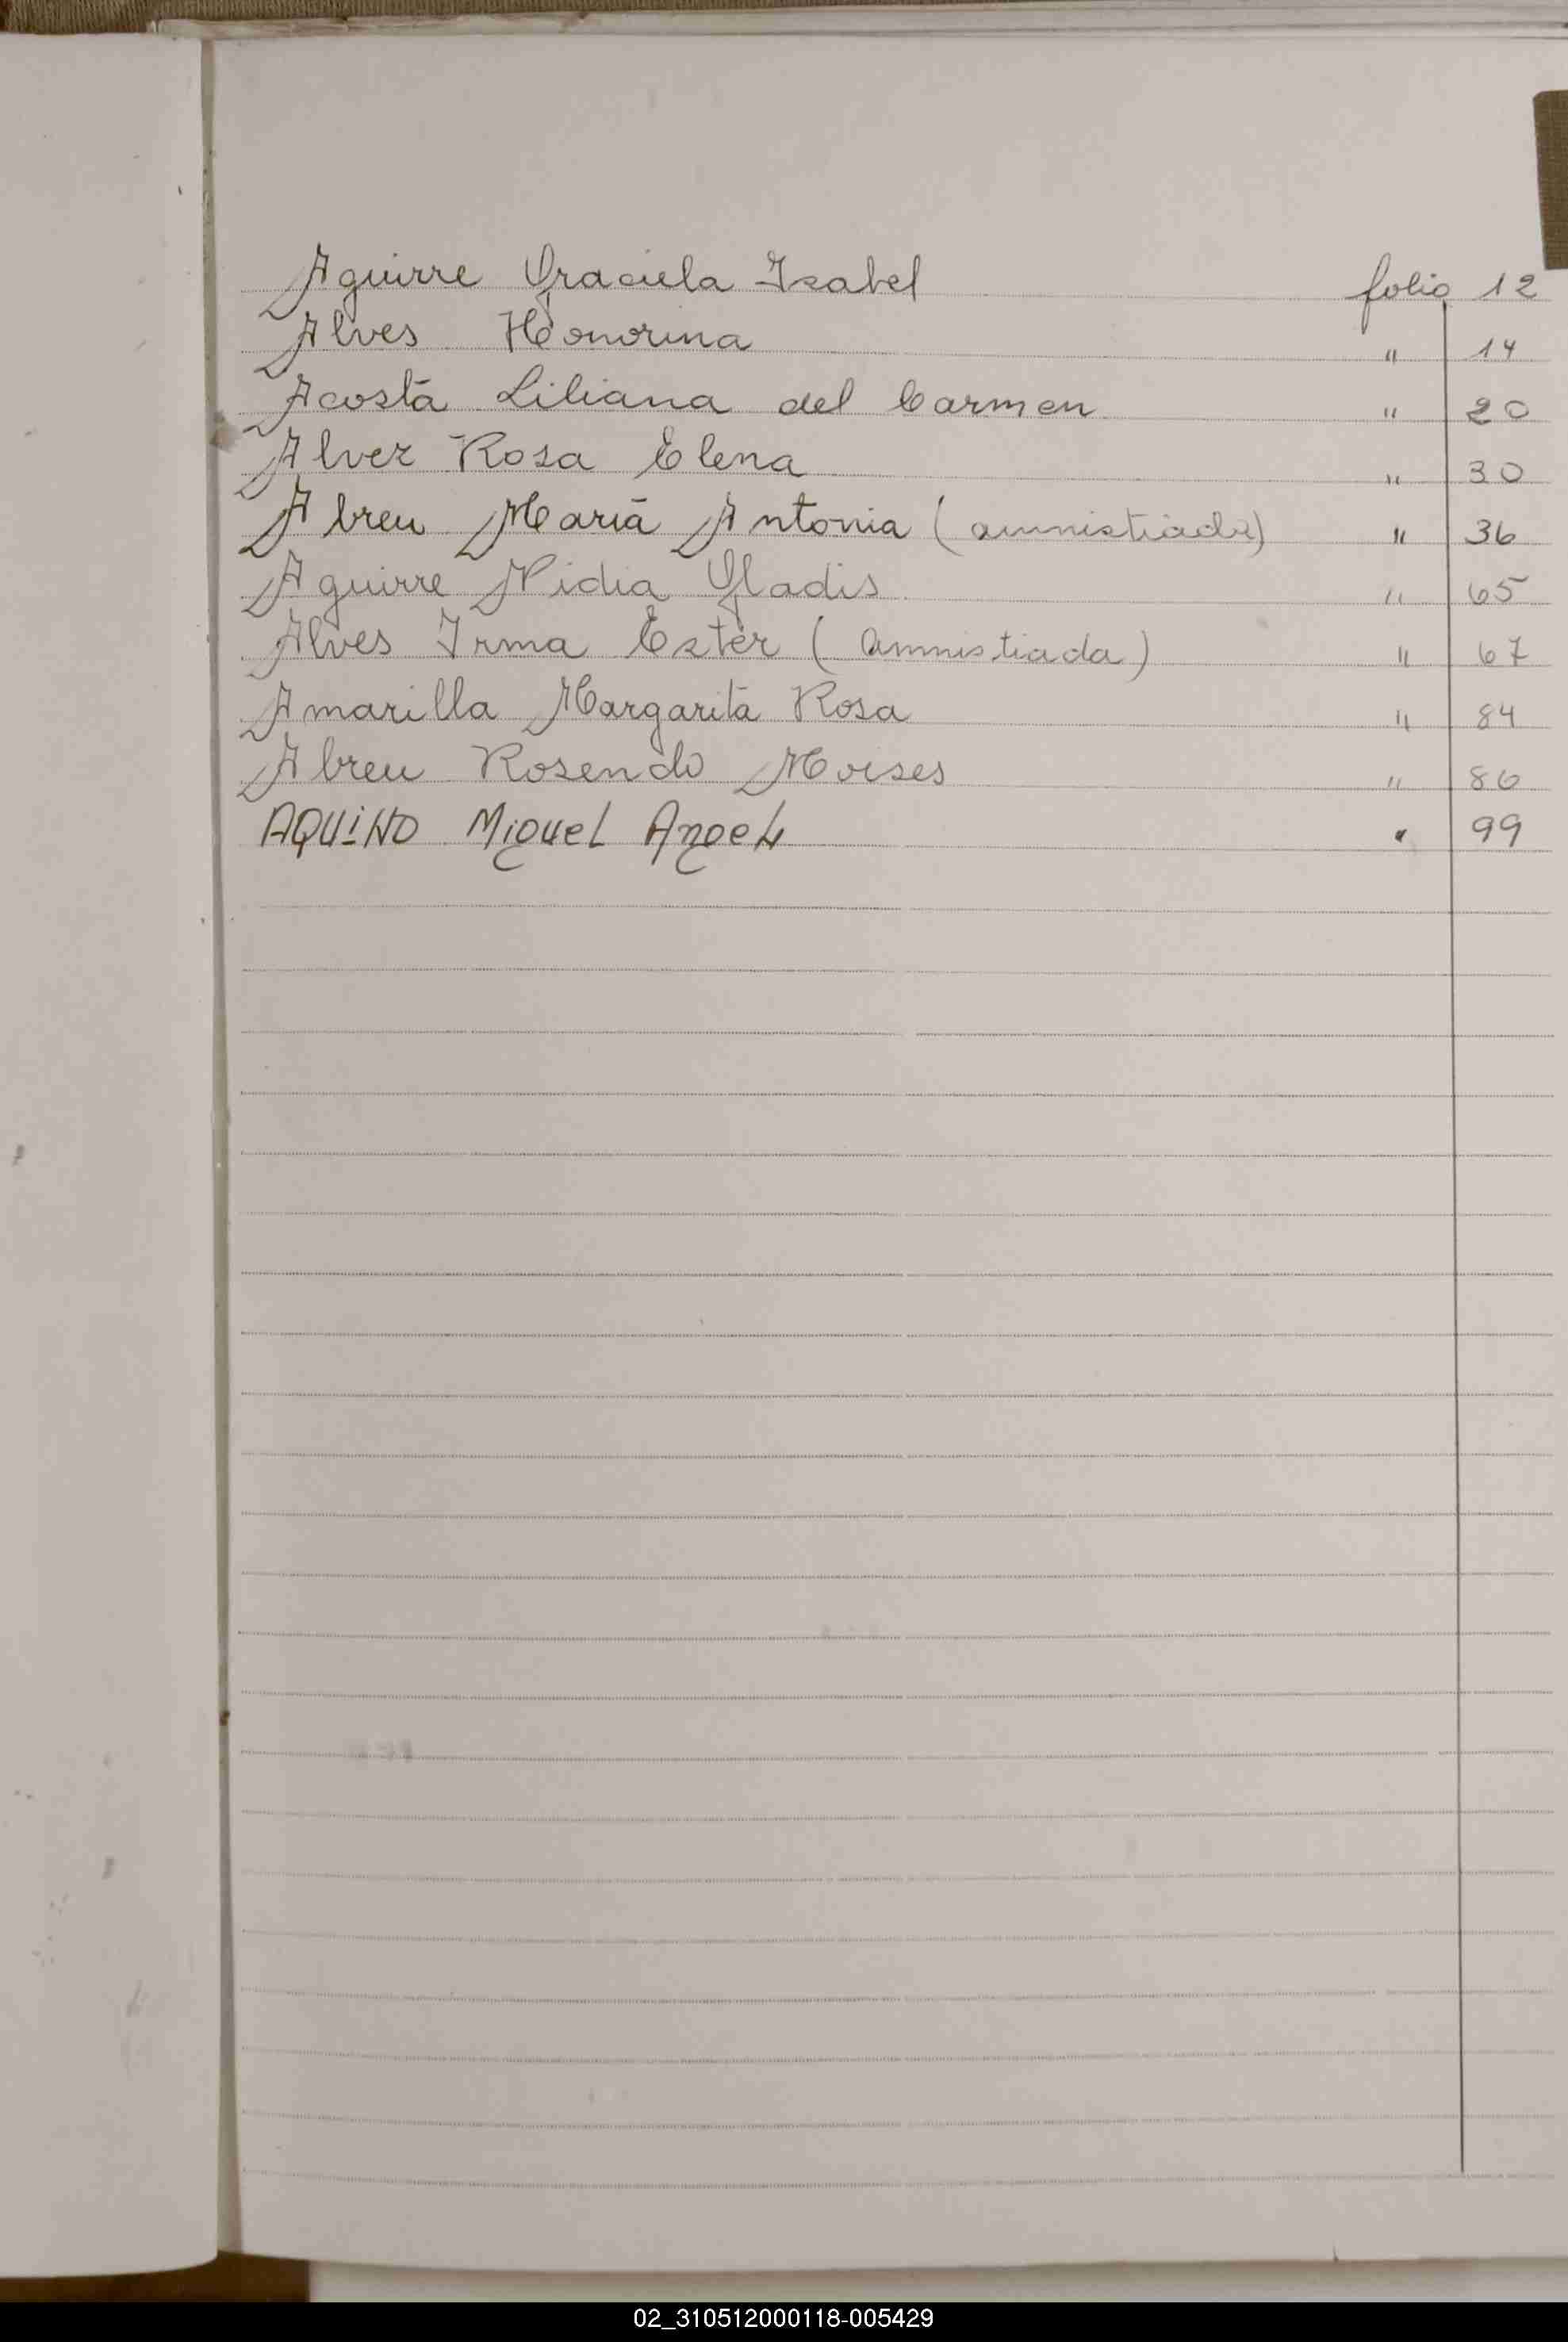 Aguirre Graciela Isabel folio 12
Alves Honorina " 14
Acosta Liliana del Carmen " 20
Alvez Rosa Elena " 30
Abreu María Antonia (amnistiada) " 36
Aguirre Nidia Gladis " 65
Alves Irma Ester (amnistiada) " 67
Amarilla Margarita Rosa " 84
Abreu Rosendo Moises " 86
AQUiNO MiguEL AngeL " 99
02_310512000118-005429